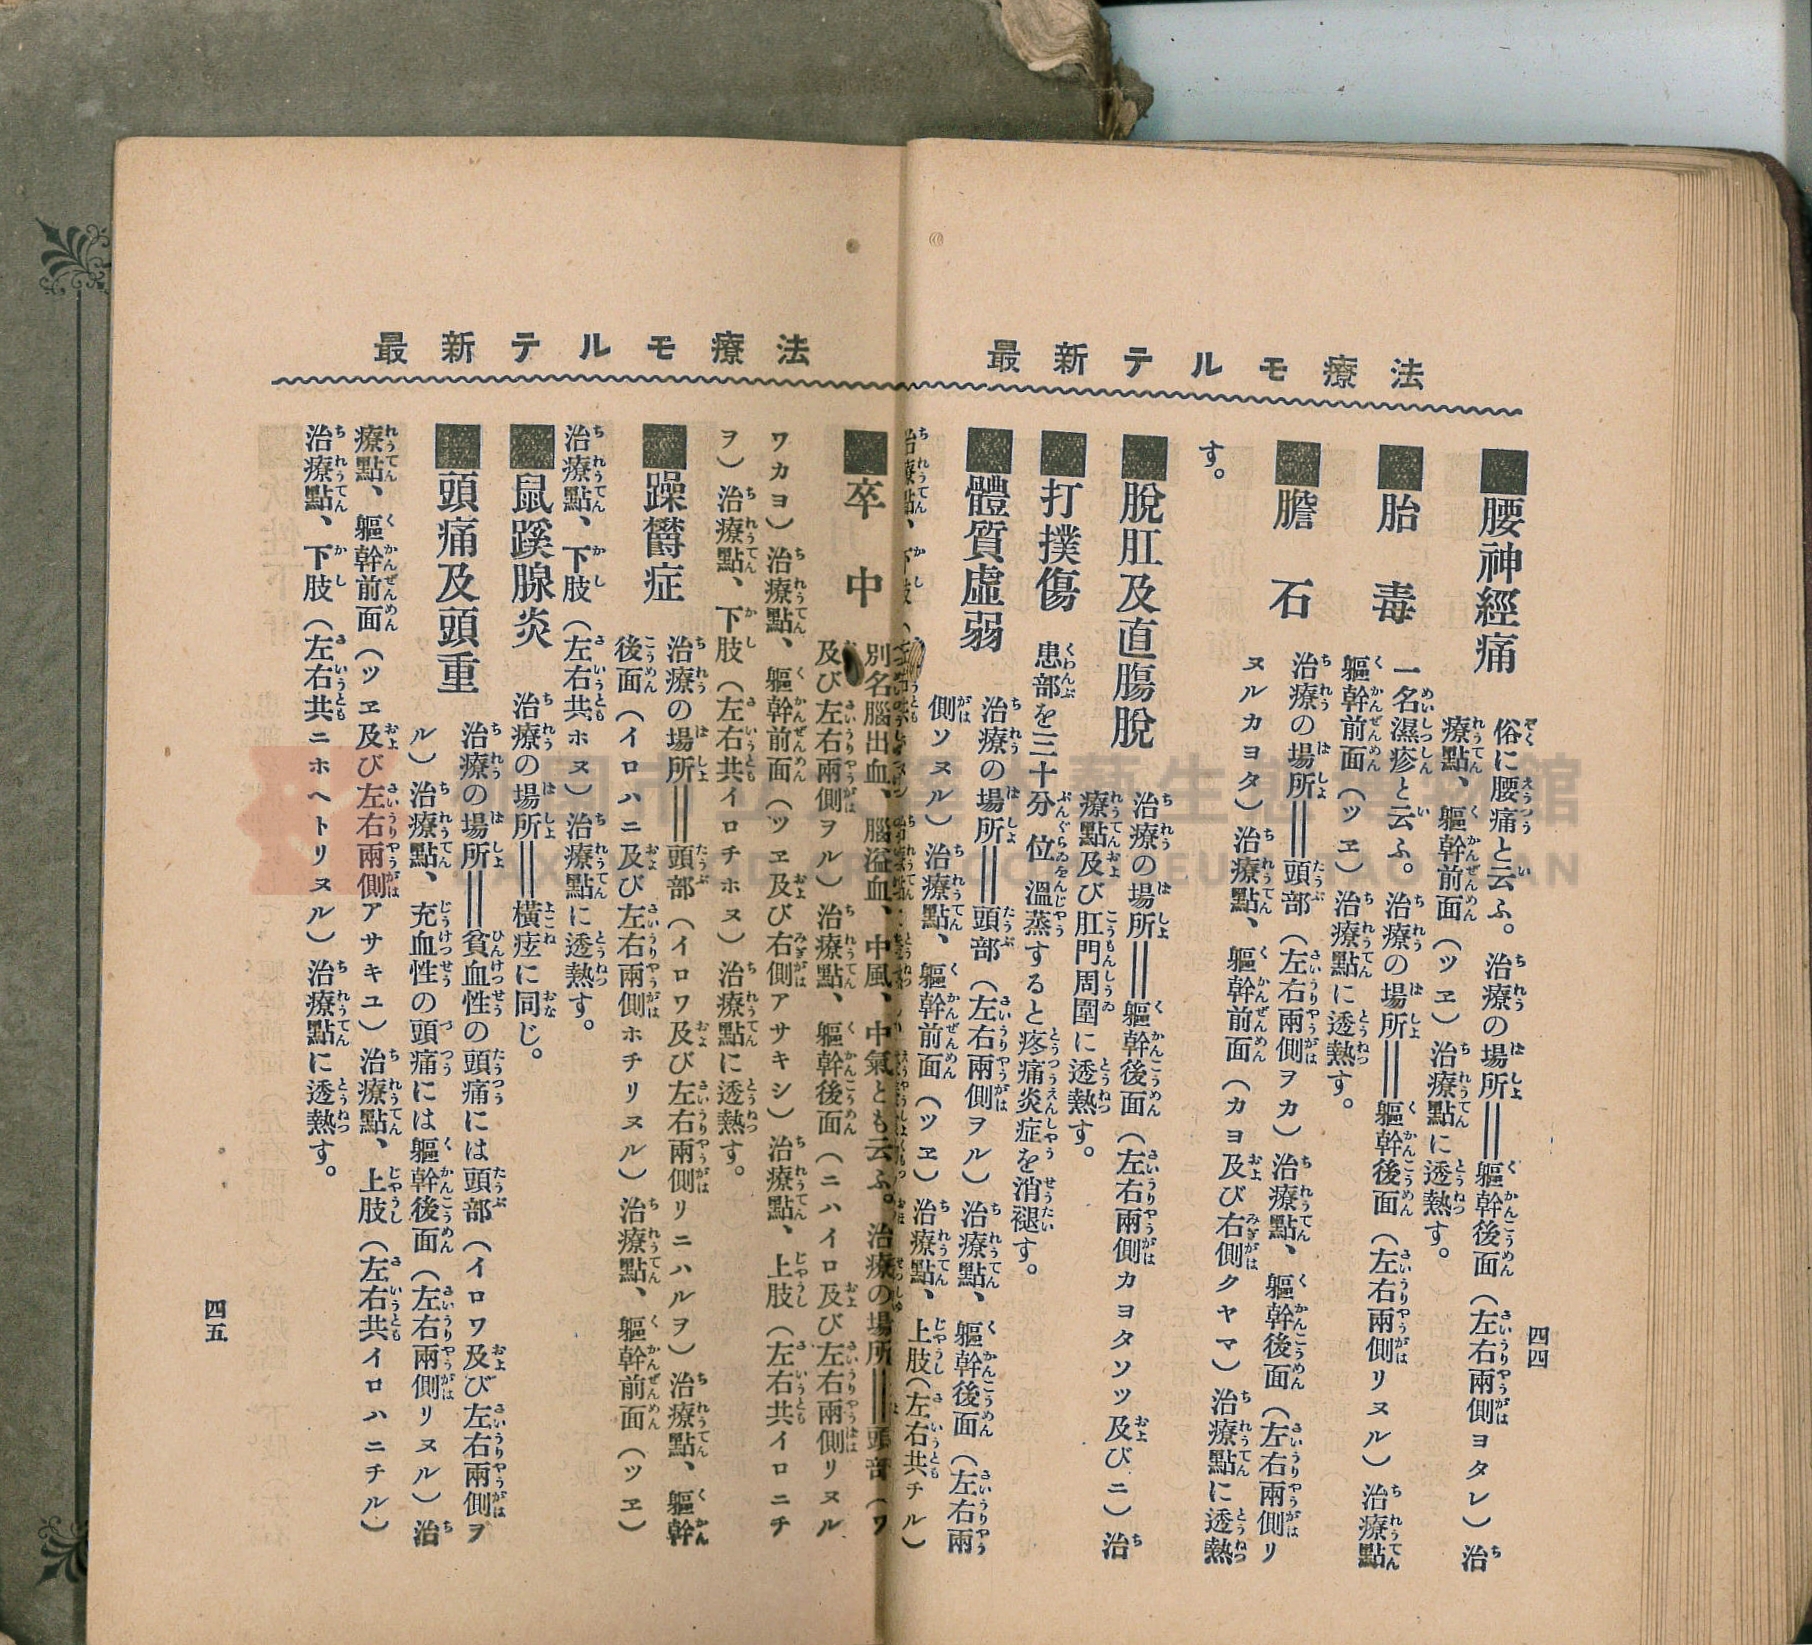 最新テルモ療法
腰神經痛 俗に腰痛と云ふ。治療の場所＝軀幹後面（左右兩側ヨタレ）治
療點、軀幹前面（ツヱ）治療點に透熱す。
胎毒 一名濕疹と云ふ。治療の場所＝軀幹後面（左右兩側リヌル）治療點
軀幹前面（ツヱ）治療點に透熱す。
膽石 治療の場所＝頭部（左右兩側ヲカ）治療點、軀幹後面（左右兩側リ
ヌルカヨタ）治療點、軀幹前面（カヨ及び右側クヤマ）治療點に透熱
す。
脫肛及直膓脫 治療の場所＝軀幹後面（左右兩側カヨタソツ及びニ）治
療點及び肛門周圍に透熱す。
打撲傷 患部を三十分位溫蒸すると疼痛炎症を消褪す。
體質虛弱 治療の場所＝頭部（左右兩側ヲル）治療點、軀幹後面（左右兩
側ソヌル）治療點、軀幹前面（ツヱ）治療點、上肢（左右共チル）
治療點、下肢（
四四
最新テルモ療法
卒中 別名腦出血、腦溢血、中風、中氣とも云ふ。治療の場所＝頭部（ワ
及び左右兩側ヲル）治療點、軀幹後面（ニハイロ及び左右兩側リヌル
ワカヨ）治療點、軀幹前面（ツヱ及び右側アサキシ）治療點、上肢（左右共イロニチ
ヲ）治療點、下肢（左右共イロチホヌ）治療點に透熱す。
躁鬱症 治療の場所＝頭部（イロワ及び左右兩側リニハルヲ）治療點、軀幹
後面（イロハニ及び左右兩側ホチリヌル）治療點、軀幹前面（ツヱ）
治療點、下肢（左右共ホヌ）治療點に透熱す。
鼠蹊腺炎 治療の場所＝橫痃に同じ。
頭痛及頭重 治療の場所＝貧血性の頭痛には頭部（イロワ及び左右兩側ヲ
ル）治療點、充血性の頭痛には軀幹後面（左右兩側リヌル）治
療點、軀幹前面（ツヱ及び左右兩側アサキユ）治療點、上肢（左右共イロハニチル）
治療點、下肢（左右共ニホヘトリヌル）治療點に透熱す。
四五